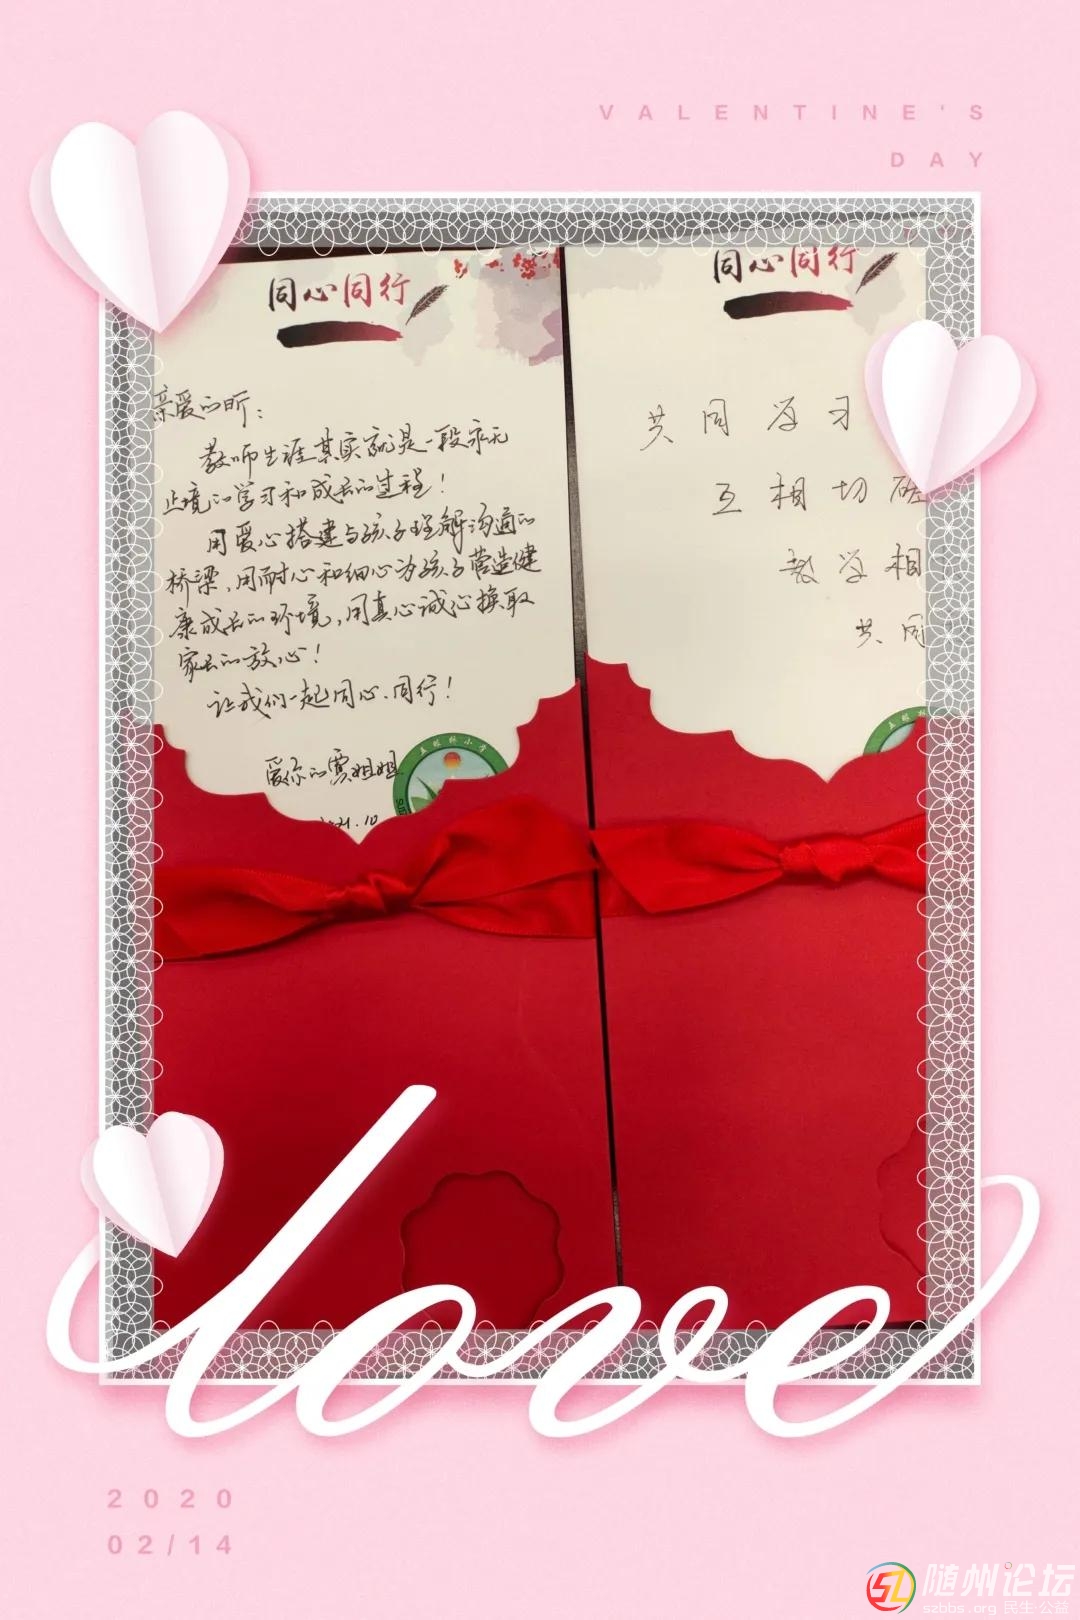 VALENTINE'S
DAY
同心同行
亲爱的昕：
教师生涯其实就是一段永无
止境的学习和成长的过程！
用爱心搭建与孩子理解沟通的
桥梁，用耐心和细心为孩子营造健
康成长的环境，用真心诚心换取
家长的放心！
让我们一起同心、同行！
爱你的窦姐姐
2021.10
五眼桥小学
同心同行
共同学习
互相切磋
教学相
共同
love
2020
02/14
随州论坛
szbbs.org 民生·公益